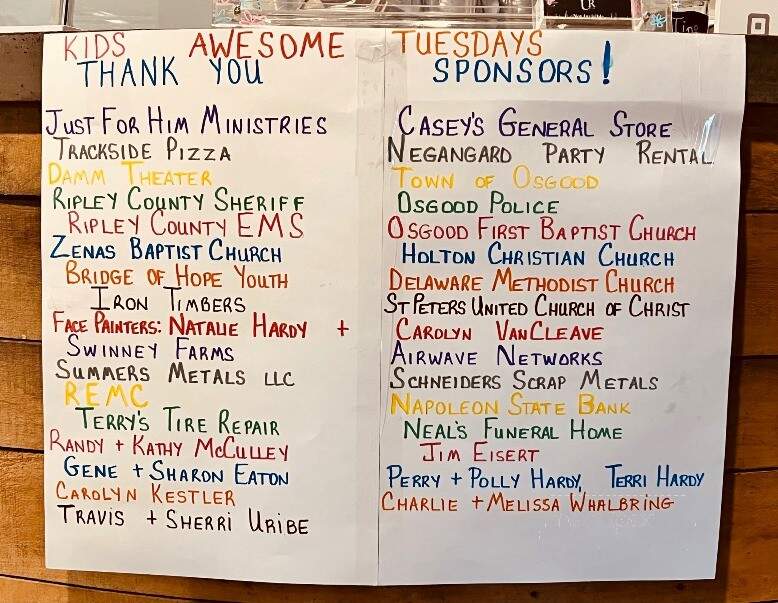 KIDS AWESOME TUESDAYS
THANK YOU SPONSORS!
JUST FOR HIM MINISTRIES
TRACKSIDE PIZZA
DAMM THEATER
RIPLEY COUNTY SHERIFF
RIPLEY COUNTY EMS
ZENAS BAPTIST CHURCH
BRIDGE OF HOPE YOUTH
IRON TIMBERS
FACE PAINTERS: NATALIE HARDY + CAROLYN VANCLEAVE
SWINNEY FARMS
SUMMERS METALS LLC
REMC
TERRY'S TIRE REPAIR
RANDY + KATHY MCCULLEY
GENE + SHARON EATON
CAROLYN KESTLER
TRAVIS + SHERRi URIBE
CASEY'S GENERAL STORE
NEGANGARD PARTY RENTAL
TOWN OF OSGOOD
OSGOOD POLICE
OSGOOD FIRST BAPTIST CHURCH
HOLTON CHRISTIAN CHURCH
DELAWARE METHODIST CHURCH
ST PETERS UNITED CHURCH OF CHRIST
AIRWAVE NETWORKS
SCHNEIDERS SCRAP METALS
NAPOLEON STATE BANK
NEAL'S FUNERAL HOME
JIM EISERT
PERRY + POLLY HARDY, TERRI HARDY
CHARLIE + MELISSA WHALBRING